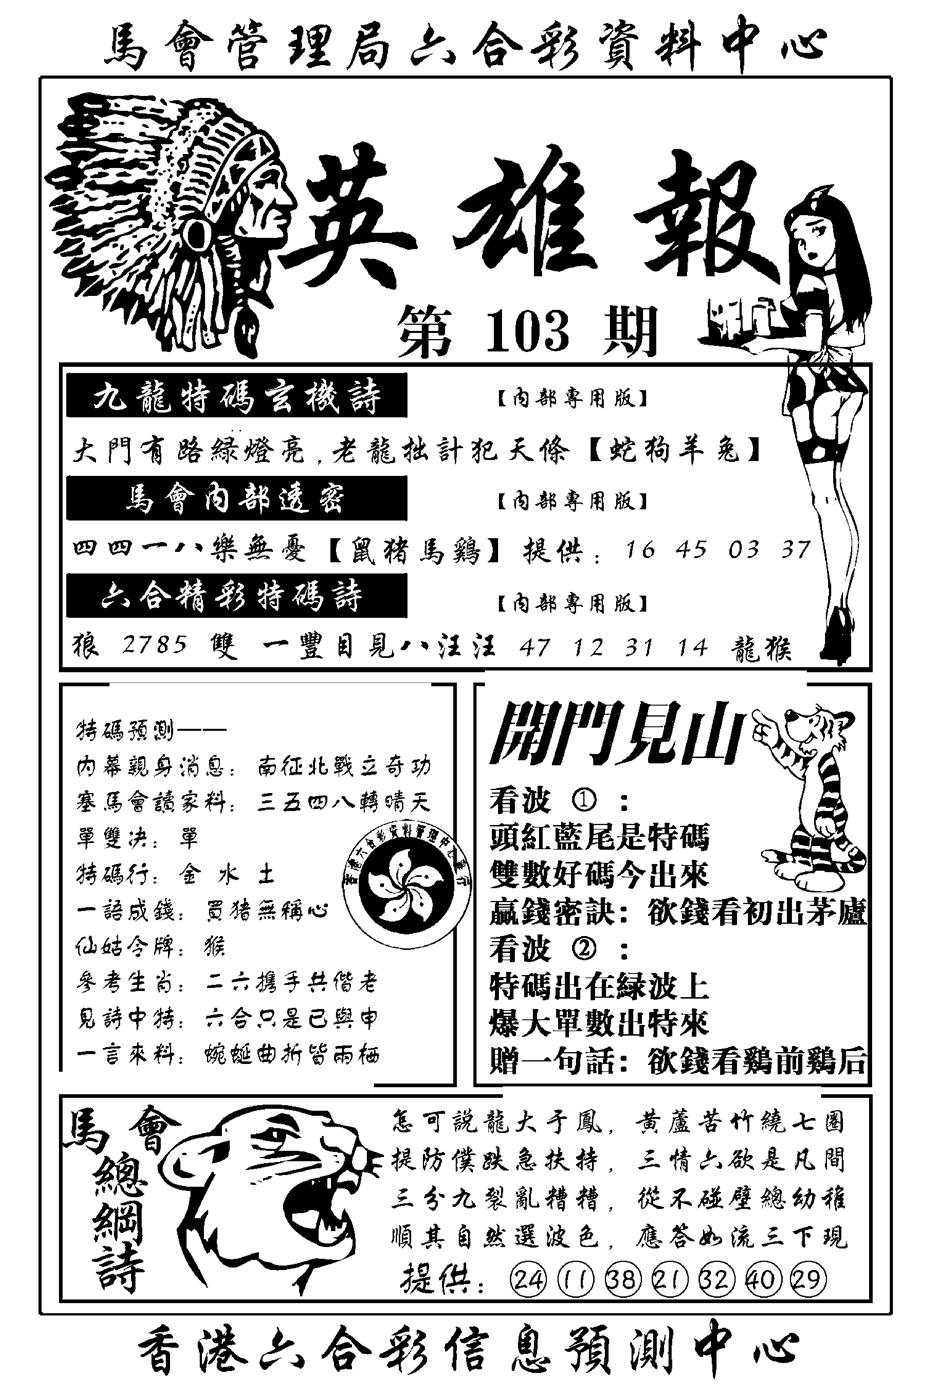 馬會管理局六合彩資料中心
英雄報
第 103 期
九龍特碼玄機詩 【內部專用版】
大門有路綠燈亮,老龍拙計犯天條【蛇狗羊兔】
馬會內部透密 【內部專用版】
四四一八樂無憂【鼠猪馬鷄】提供：16 45 03 37
六合精彩特碼詩 【內部專用版】
狼 2785 雙 一豐目見八汪汪 47 12 31 14 龍猴
特碼預測——
內幕親身消息：南征北戰立奇功
塞馬會讀家料：三五四八轉晴天
單雙决：單
特碼行：金 水 土
一語成錢：買猪無稱心
仙姑令牌：猴
參考生肖：二六攜手共偕老
見詩中特：六合只是已與申
一言來料：蜿蜒曲折皆兩栖
開門見山
看波 ①：
頭紅藍尾是特碼
雙數好碼今出來
贏錢密訣：欲錢看初出茅廬
看波 ②：
特碼出在緑波上
爆大單數出特來
贈一句話：欲錢看鷄前鷄后
馬會
總綱詩
怎可説龍大于鳳，黄蘆苦竹繞七圈
提防僕跌急扶持，三情六欲是凡間
三分九裂亂糟糟，從不碰壁總幼稚
順其自然選波色，應答如流三下現
提供：24 11 38 21 32 40 29
香港六合彩信息預測中心